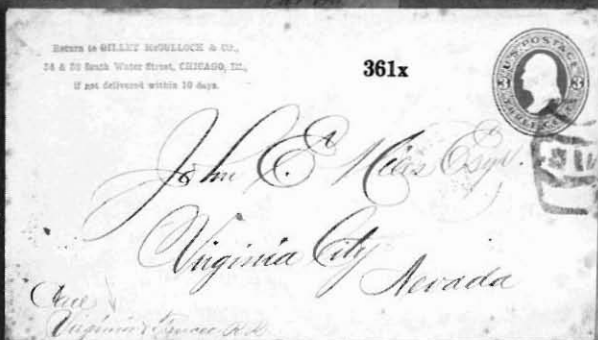 Return to GILLET McCULLOCH & CO.,
24 & 26 South Water Street, CHICAGO, ILL.,
If not delivered within 10 days.
361x
U.S. POSTAGE
3 3
THREE CENTS
John E. Esqr.
Virginia City
Nevada
Care
Virginia & Truckee R R